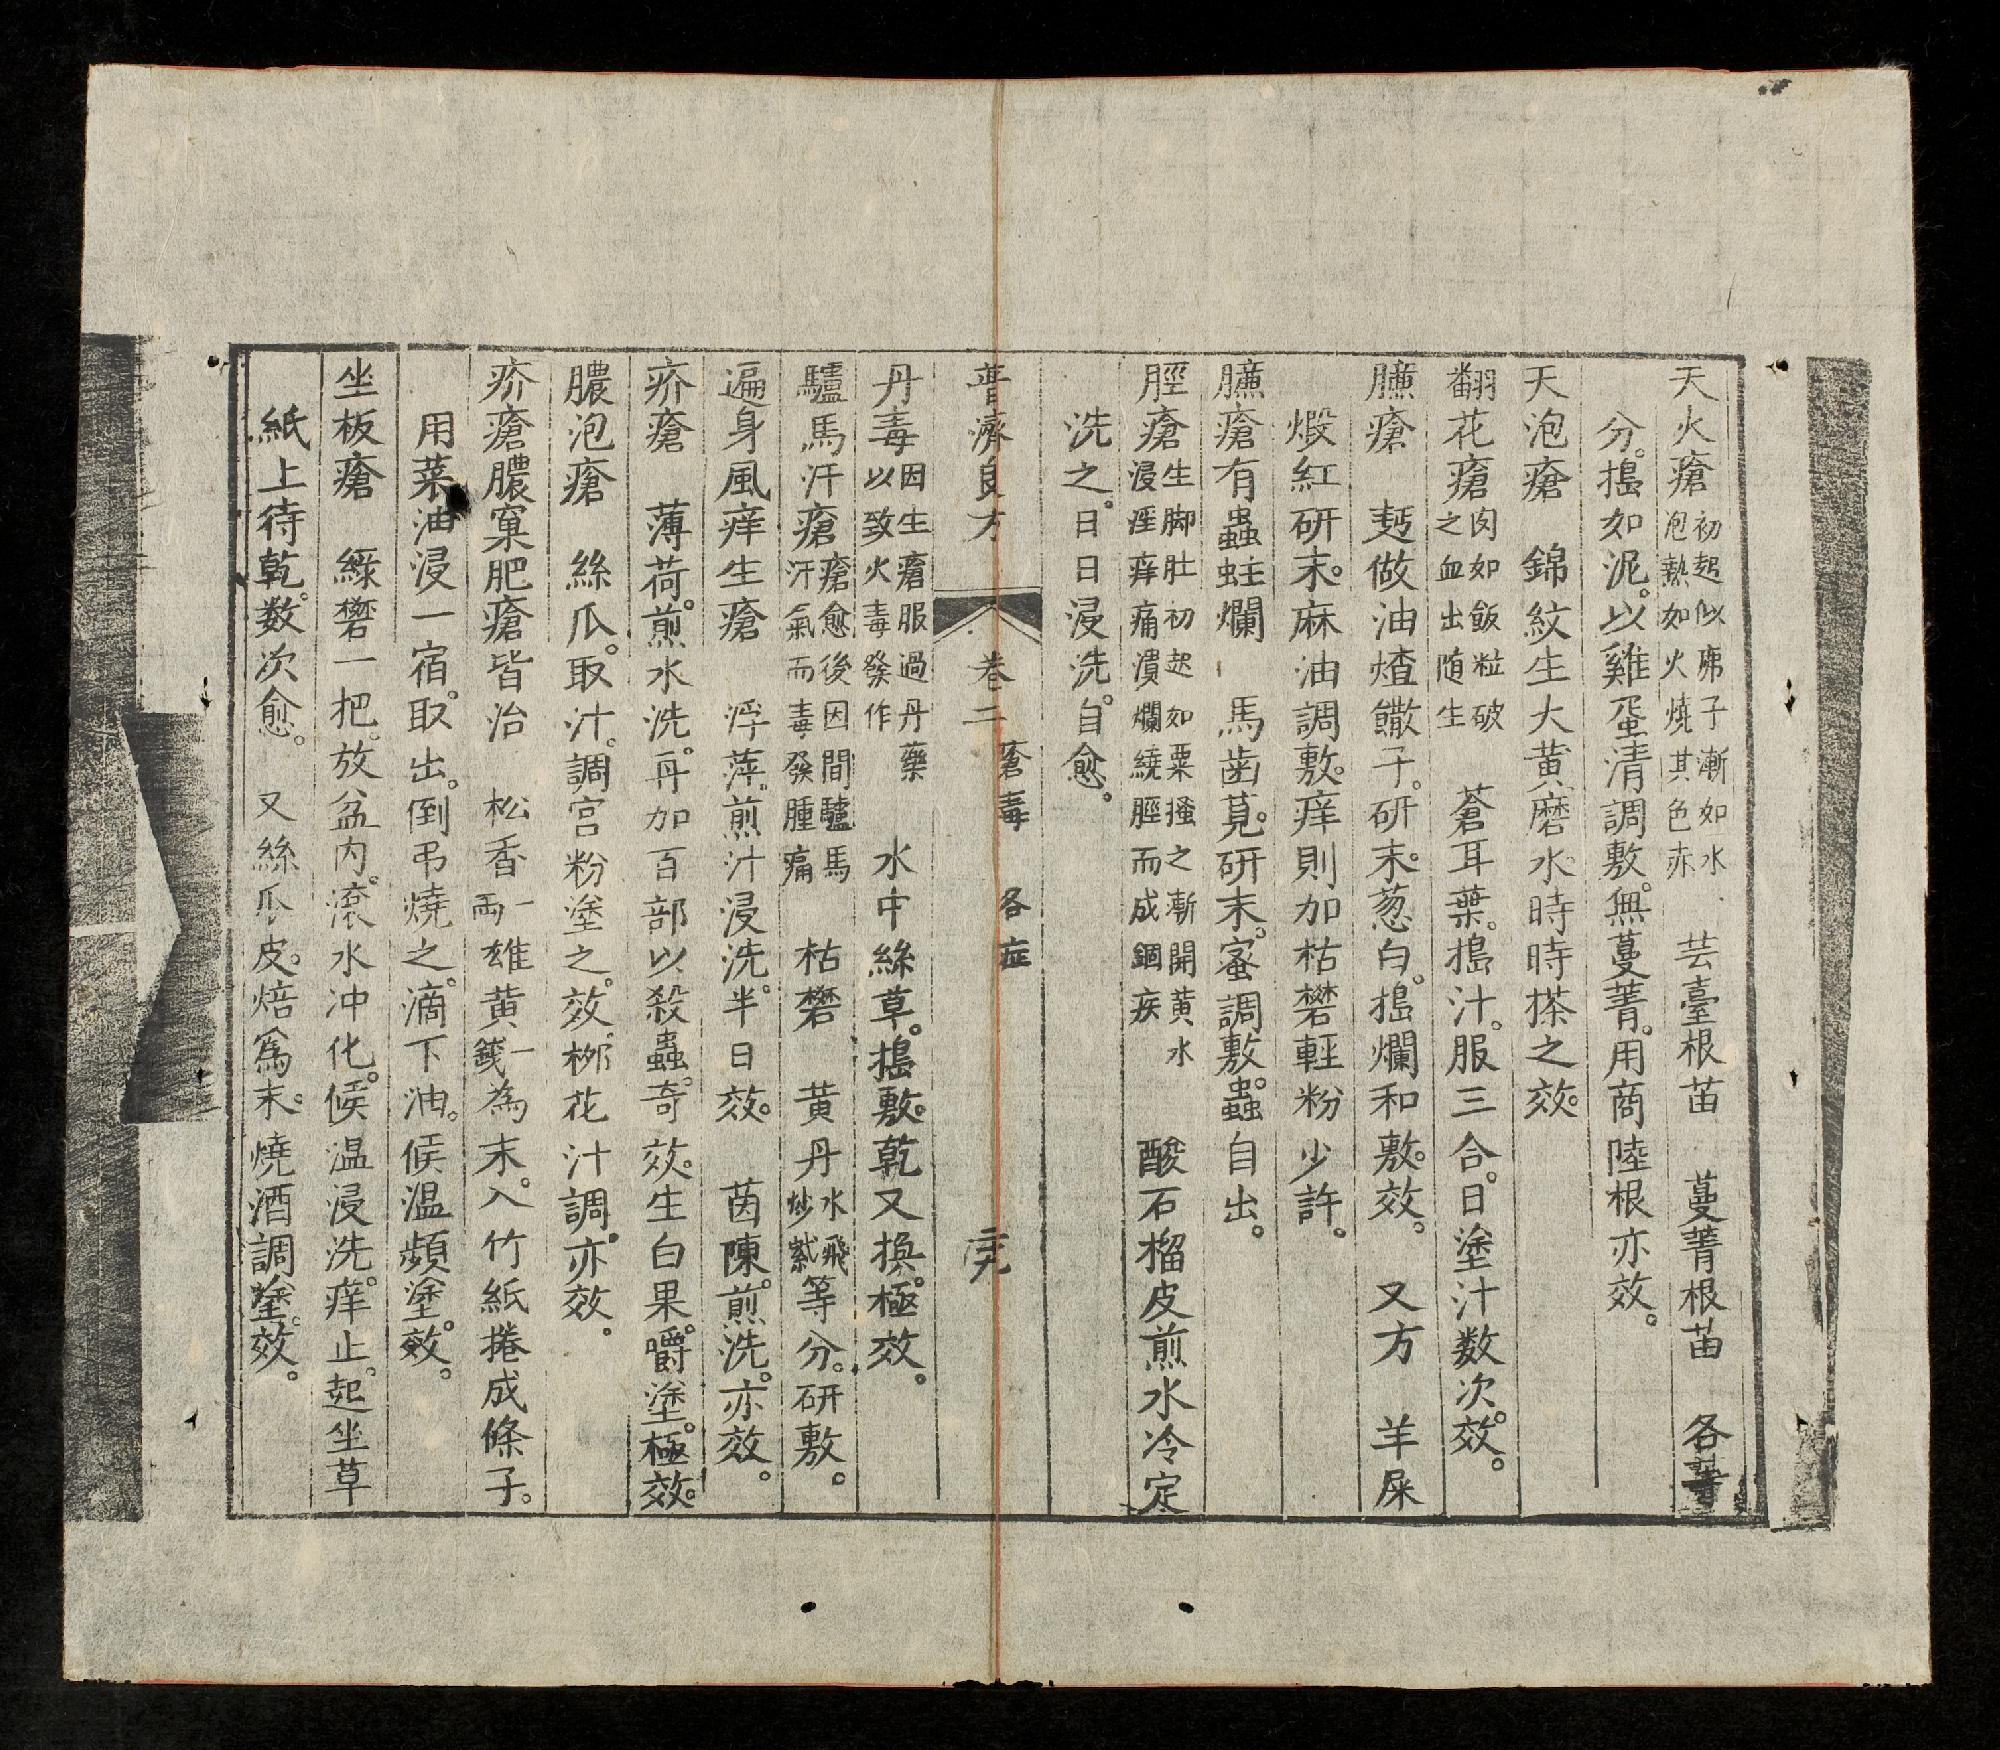 天火瘡初起似痱子漸如水泡熱如火燒其色赤 芸臺根苗 蔓菁根苗 各等
分。搗如泥。以雞蛋清調敷。無蔓菁。用商陸根亦效。
天泡瘡 錦紋生大黄磨水。時時搽之效。
翻花瘡肉如飯粒破之血出随生 蒼耳葉。搗汁。服三合。日塗汁数次。效。
臁瘡 麪做油煠饊子。研末。葱白。搗爛和敷。效。 又方 羊屎
煅紅研末。麻油調敷。痒則加枯礬輕粉少許。
臁瘡有蟲蛀爛 馬齒莧。研末。蜜調敷。蟲自出。
脛瘡生脚肚初起如粟搔之漸開黄水浸淫痒痛潰爛繞脛而成錮疾 酸石榴皮煎水冷定
洗之。日日浸洗。自愈。
普濟良方 卷二 瘡毒 各症
丹毒因生瘡服過丹藥以致火毒發作 水中絲草。搗敷。乾又换。極效。
驢馬汗瘡瘡愈後因間驢馬汗氣而毒發腫痛 枯礬 黄丹水飛炒紫等分。研敷。
遍身風痒生瘡 浮萍。煎汁浸洗。半日效。 茵陳。煎洗。亦效。
疥瘡 薄荷。煎水洗。再加百部以殺蟲。奇效。生白果。嚼塗。極效。
膿泡瘡 絲瓜。取汁。調宫粉塗之。效。栁花汁調。亦效。
疥瘡膿窠肥瘡皆治 松香一両雄黄一錢為末。入竹紙捲成條子。
用菜油浸一宿。取出。倒弔燒之。滴下油。候温頻塗。效。
坐板瘡 綠礬一把。放盆内。滚水冲化。候温浸洗。痒止。起坐草
紙上待乾。数次愈。 又絲瓜皮。焙爲末。燒酒調塗。效。